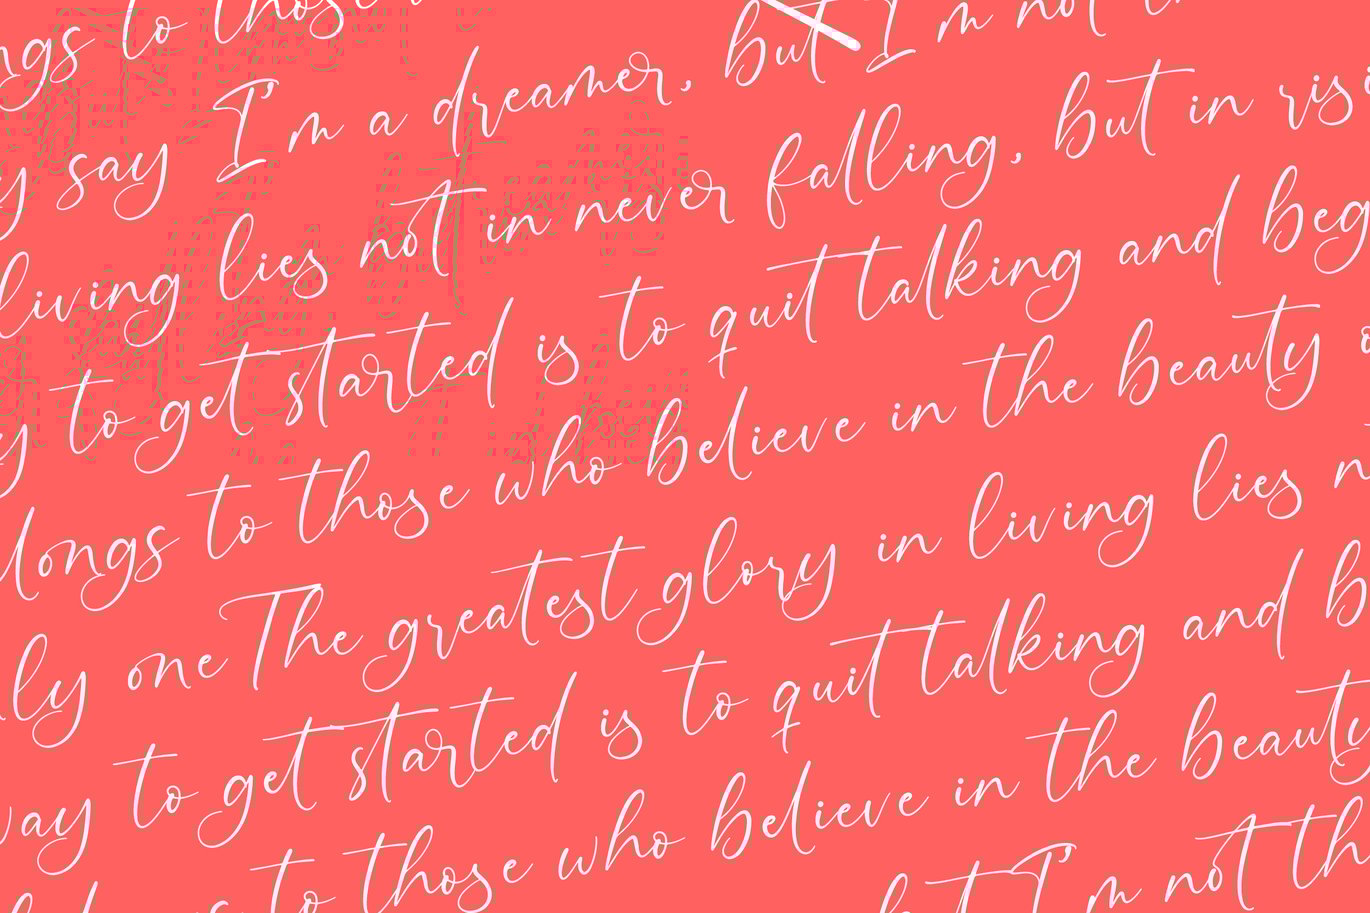 ngs to those
y say I'm a dreamer, but I'm not
living lies not in never falling, but in risi
y to get started is to quit talking and beg
longs to those who believe in the beauty o
ly one The greatest glory in living lies n
way to get started is to quit talking and b
to those who believe in the beauty
but I'm not th